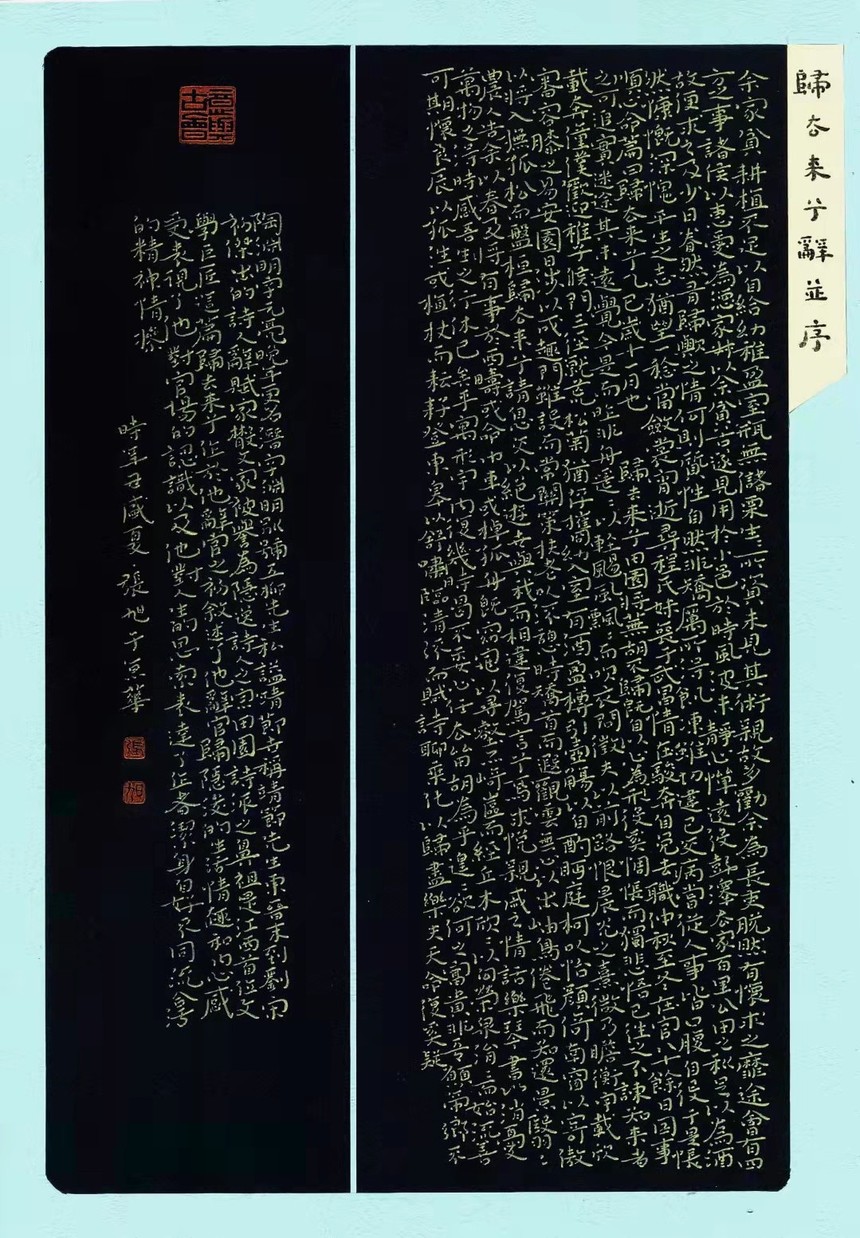 歸去来兮辭並序
余家貧耕植不足以自給幼稚盈室瓶無儲粟生生所資未見其術親故多勸余為長吏脫然有懷求之靡途會有四
方之事諸侯以惠愛為德家叔以余貧苦遂見用於小邑於時風波未靜心憚遠役彭澤去家百里公田之利足以為酒
故便求之及少日眷然有歸歟之情何則質性自然非矯厲所得飢凍雖切違己交病嘗從人事皆口腹自役于是悵
然慷慨深愧平生之志猶望一稔當斂裳宵逝尋程氏妹喪于武昌情在駿奔自免去職仲秋至冬在官八十餘日因事
順心命篇曰歸去来兮乙巳歲十一月也 歸去来兮田園將蕪胡不歸既自以心為形役奚惆悵而獨悲悟已往之不諫知来者
之可追實迷途其未遠覺今是而昨非舟遙遙以輕颺風飄飄而吹衣問徵夫以前路恨晨光之熹微乃瞻衡宇載欣
載奔僮僕歡迎稚子候門三徑就荒松菊猶存攜幼入室有酒盈樽引壺觴以自酌眄庭柯以怡顏倚南窗以寄傲
審容膝之易安園日涉以成趣門雖設而常關策扶老以流憩時矯首而遐觀雲無心以出岫鳥倦飛而知還景翳翳
以將入撫孤松而盤桓歸去来兮請息交以絕遊世與我而相違復駕言兮焉求悅親戚之情話樂琴書以消憂
農人告余以春及將有事於西疇或命巾車或棹孤舟既窈窕以尋壑亦崎嶇而經丘木欣欣以向榮泉涓涓而始流善
萬物之得時感吾生之行休已矣乎寓形宇内復幾時曷不委心任去留胡為乎遑遑欲何之富貴非吾願帝鄉不
可期懷良辰以孤往或植杖而耘耔登東皋以舒嘯臨清流而賦詩聊乘化以歸盡樂夫天命復奚疑
陶淵明字元亮晚年更名潛字淵明別號五柳先生私謚靖節世稱靖節先生東晉末到劉宋
初傑出的詩人辭賦家散文家被譽為隱逸詩人之宗田園詩派之鼻祖是江西首位文
學巨匠這篇歸去来兮作於他辭官之初敘述了他辭官歸隱後的生活情趣和内心感
受表現了他對官場的認識以及他對人生的思索表達了作者潔身自好不同流合污
的精神情操
時辛丑盛夏張旭于京華
張
旭